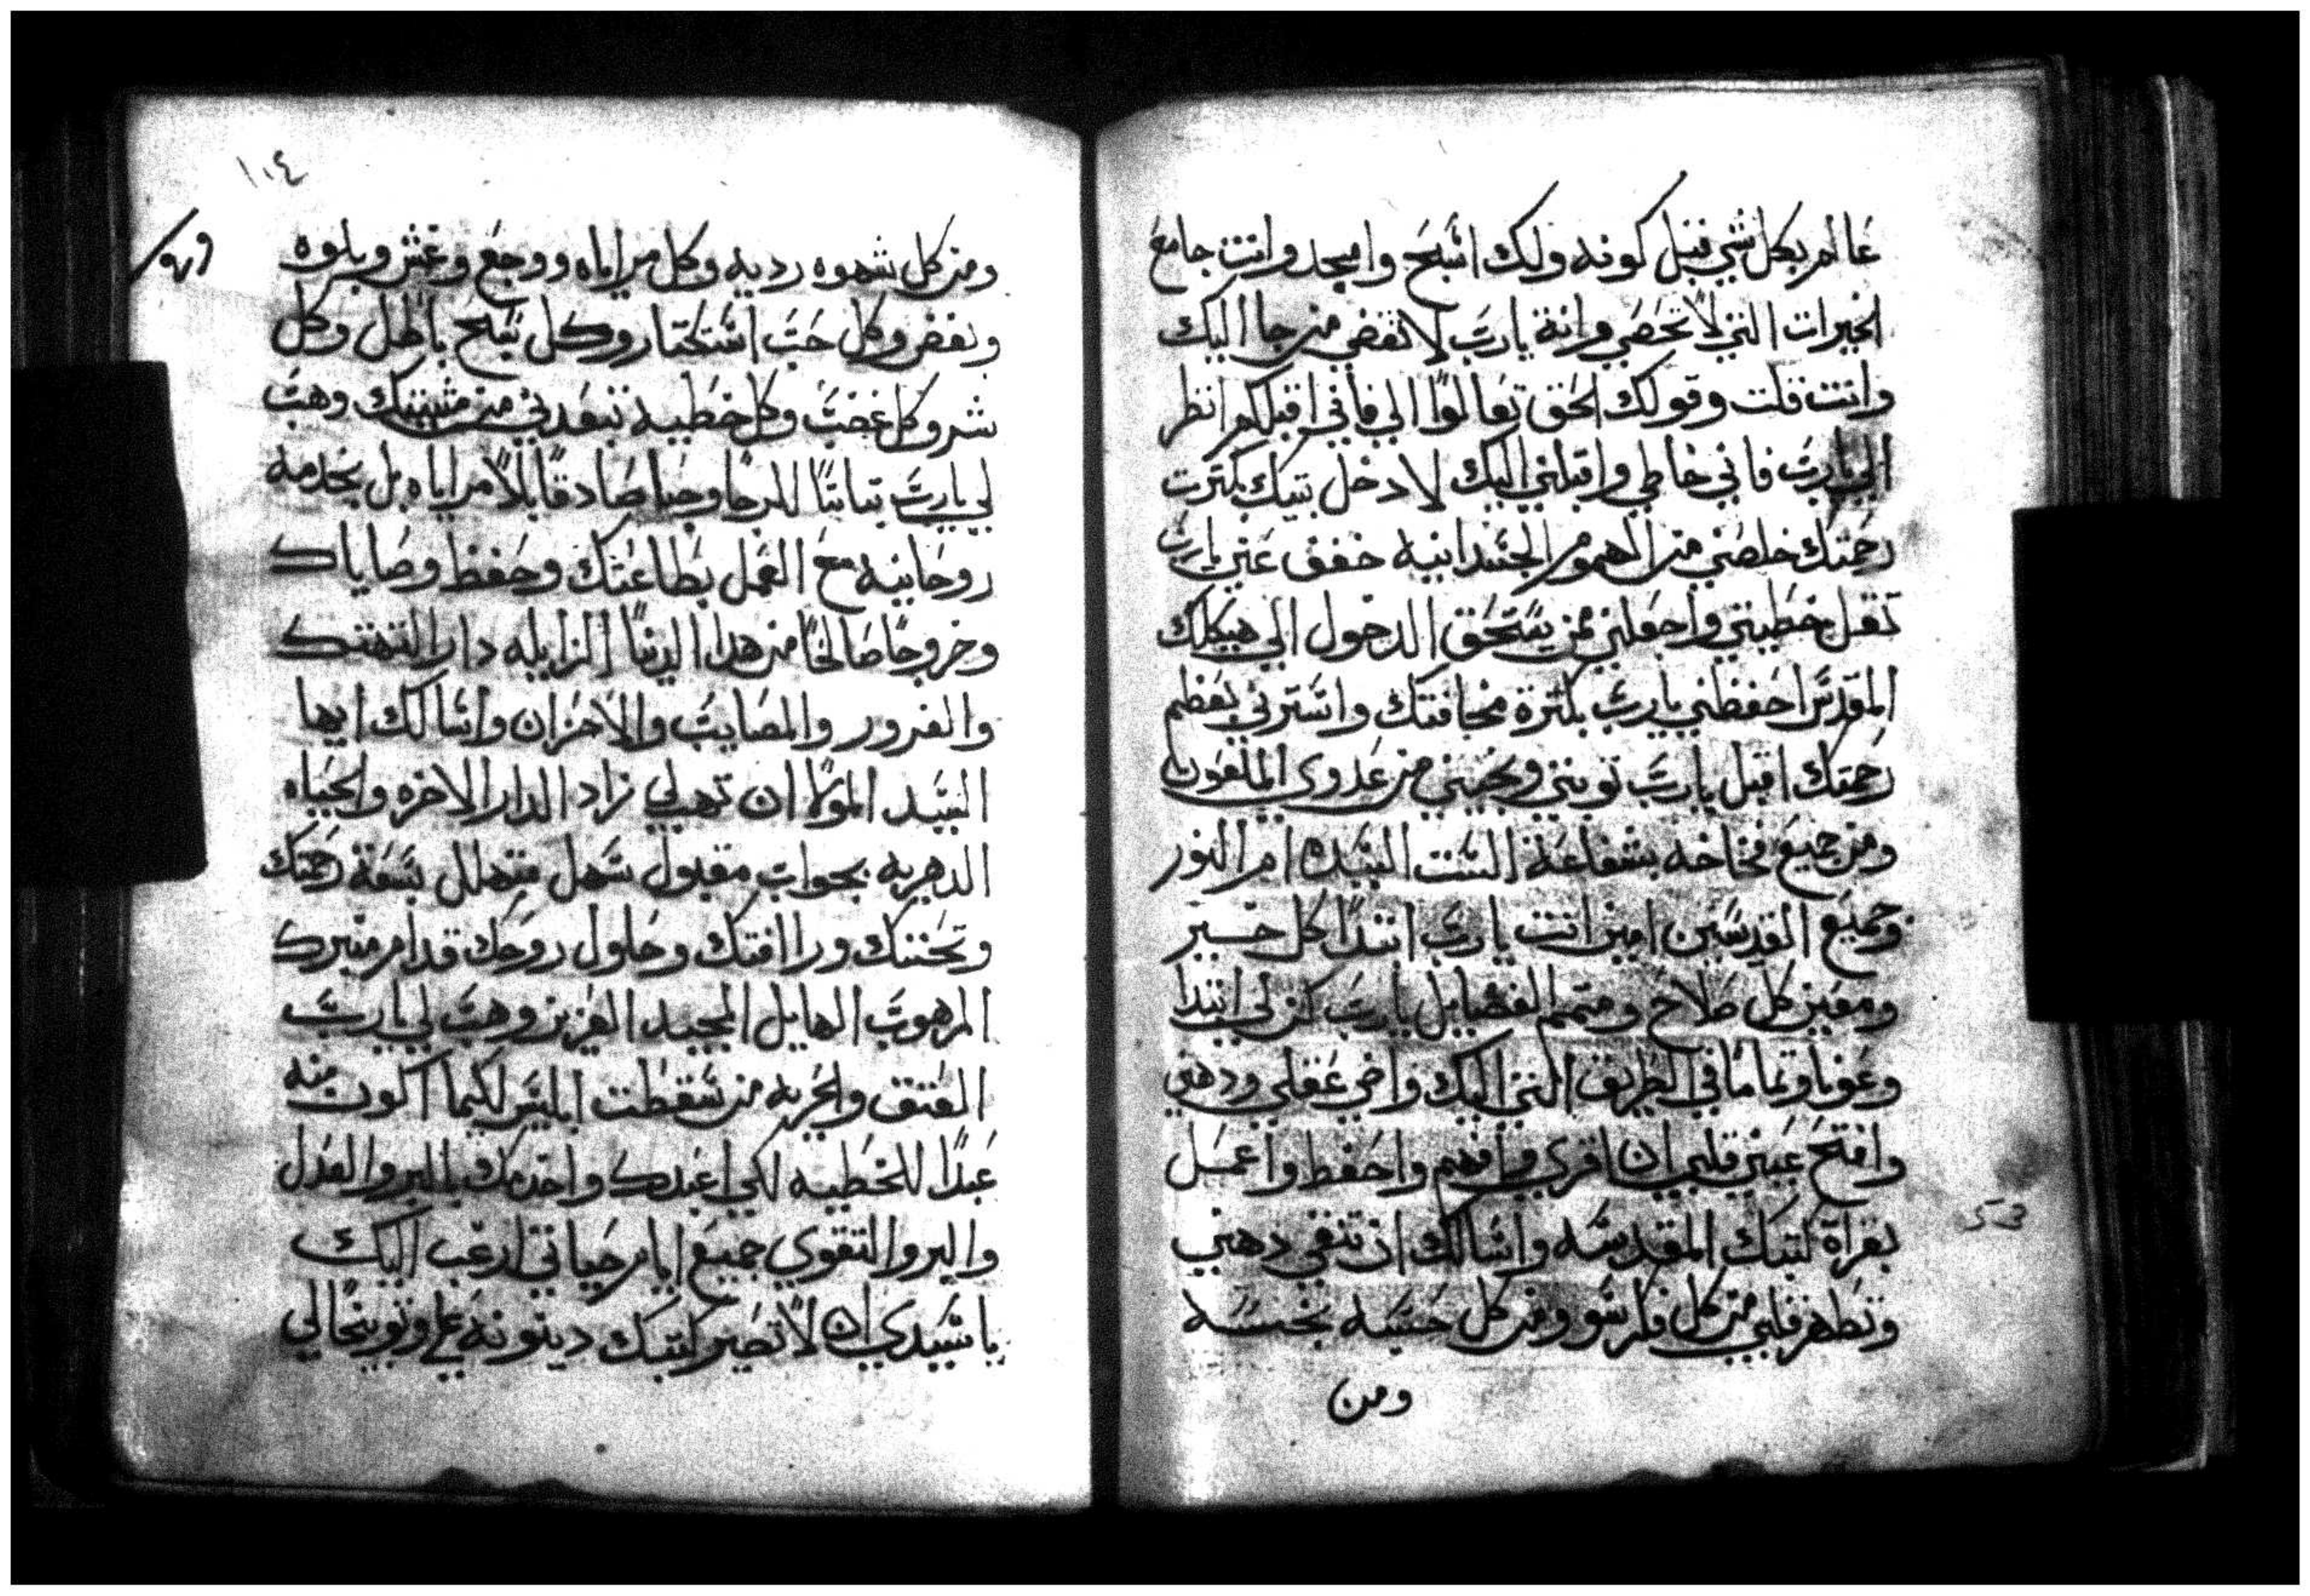 عالم بكل شي قبل كونه ولك اسبح وامجد وانت جامع
الخيرات التي لا تحصي وانة يارب لا تقضي من جا اليك
وانت قلت وقولك الحق تعالوا الي فاني اقبلكم انظر
الي يارب فاني خاطي واقبلني اليك لادخل بيتك بكترت
رحمتك خلصني من الهموم الجسدانيه خفف عني يارب
تقل خطيتي واجعلني ممن يستحق الدخول الي هيكلك
المقدس احفظني يارب بكترة مخافتك واسترني بعظم
رحمتك اقبل يارب توبتي ونجيني من عدوي الملعون
ومن جميع فخاخه بشفاعة الست السيده ام النور
وجميع القديسين امين انت يارب ابتدا كل خير
ومعين كل صلاح ومتمم الفضايل يارب كن لي ابتدا
وعونا وتماما في الطريق التي اليك واضي عقلي ودهني
وافتح عيني قلبي ان اقري وافهم واحفظ واعمل
بقراة كتبك المقدسه واسالك ان تنقي دهني
وتطهر قلبي من كل فكر سو ومن كل حسبه نجسه
ومن
١٠٤
ومن كل شهوه رديه وكل مراياه ووجع وغش وبلوه
وبغض وكل حب استكتار وكل سبح باطل وكل
شر وكل غضب وكل خطيه تبعدني من مشيتك وهب
لي يارب تباتا للرجا وحبا صادقا بلا مراياه بل بخدمه
روحانيه مع العمل بطاعتك وحفظ وصاياك
وخروجا صالحا من هدا الدنيا الزايله دار التهتك
والغرور والمصايب والاحزان واسالك ايها
السيد المولا ان تهب لي زاد الدار الاخره والحياه
الدهريه بجواب مقبول سهل متهلل بسعة رحمتك
وتحننك وراافتك وحلول روحك قدام منبرك
المرهوب الهايل المجيد العزيز وهب لي يارب
العتق والحريه من سقطت ابليس لكيما اكون منه
عبدا للخطيه لكي اعبدك واخدمك بالبر والعدل
والبر والتقوي جميع ايام حياتي ارغب اليك
يا سيدي ان لا تصير كتبك دينونه علي وتوبيخا لي